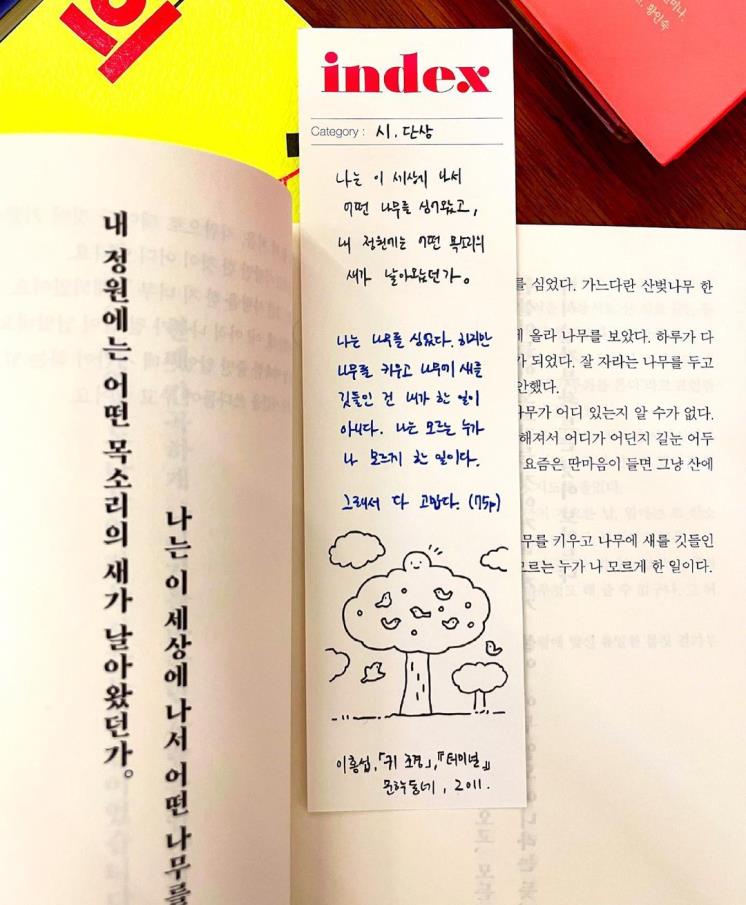 나는 이 세상에 나서 어떤 나무를
내 정원에는 어떤 목소리의 새가 날아왔던가。
index
Category : 시, 단상
나는 이 세상에 나서
어떤 나무를 심어왔고,
내 정원에는 어떤 목소리의
새가 날아왔던가。
나는 나무를 심었다. 하지만
나무를 키우고 나무에 새를
깃들인 건 내가 한 일이
아니다. 나는 모르는 누가
나 모르게 한 일이다.
그래서 다 고맙다. (75p)
이홍섭,「귀 조경」,『터미널』
문학동네, 2011.
를 심었다. 가느다란 산벚나무 한
에 올라 나무를 보았다. 하루가 다
가 되었다. 잘 자라는 나무를 두고
안했다.
나무가 어디 있는지 알 수가 없다.
해져서 어디가 어딘지 길눈 어두
요즘은 딴마음이 들면 그냥 산에
무를 키우고 나무에 새를 깃들인
모르는 누가 나 모르게 한 일이다.